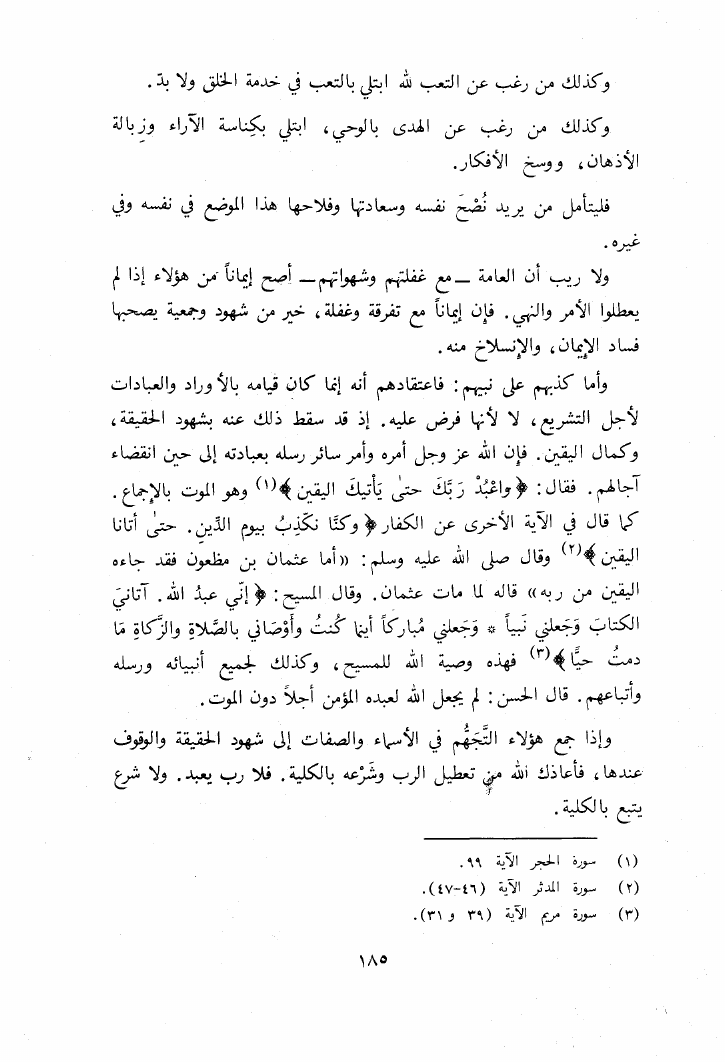 وكذلك من رغب عن التعب لله ابتلي بالتعب في خدمة الخلق ولا بدّ.
وكذلك من رغب عن الهدى بالوحي، ابتلي بكِناسة الآراء وزِبالة
الأذهان، ووسخ الأفكار.
فليتأمل من يريد نُصْحَ نفسه وسعادتها وفلاحها هذا الموضع في نفسه وفي
غيره.
ولا ريب أن العامة ــ مع غفلتهم وشهواتهم ــ أصح إيماناً من هؤلاء إذا لم
يعطلوا الأمر والنهي. فإن إيماناً مع تفرقة وغفلة، خير من شهود وجمعية يصحبها
فساد الإيمان، والإنسلاخ منه.
وأما كذبهم على نبيهم: فاعتقادهم أنه إنما كان قيامه بالأوراد والعبادات
لأجل التشريع، لا لأنها فرض عليه. إذ قد سقط ذلك عنه بشهود الحقيقة،
وكمال اليقين. فإن الله عز وجل أمره وأمر سائر رسله بعبادته إلى حين انقضاء
آجالهم. فقال: ﴿واعْبُدْ رَبَّكَ حتىٰ يَأتيكَ اليقين﴾(١) وهو الموت بالإجماع.
كما قال في الآية الأخرى عن الكفار ﴿وكنَّا نكَذِبُ بيوم الدِّينِ. حتىٰ أتانا
اليقين﴾(٢) وقال صلى الله عليه وسلم: «أما عثمان بن مظعون فقد جاءه
اليقين من ربه» قاله لما مات عثمان. وقال المسيح: ﴿إنّي عبدُ الله. آتانيَ
الكتابَ وَجَعلني نَبياً * وَجَعلني مُباركاً أينما كُنتُ وأوْصَاني بالصَّلاةِ والزَّكاةِ مَا
دمتُ حيًّا﴾(٣) فهذه وصية الله للمسيح، وكذلك لجميع أنبيائه ورسله
وأتباعهم. قال الحسن: لم يجعل الله لعبده المؤمن أجلاً دون الموت.
وإذا جمع هؤلاء التَّجَهُّم في الأسماء والصفات إلى شهود الحقيقة والوقوف
عندها، فأعاذك الله من تعطيل الرب وشَرْعه بالكلية. فلا رب يعبد. ولا شرع
يتبع بالكلية.
(١) سورة الحجر الآية ٩٩.
(٢) سورة المدثر الآية (٤٦-٤٧).
(٣) سورة مريم الآية (٣٩ و٣١).
١٨٥